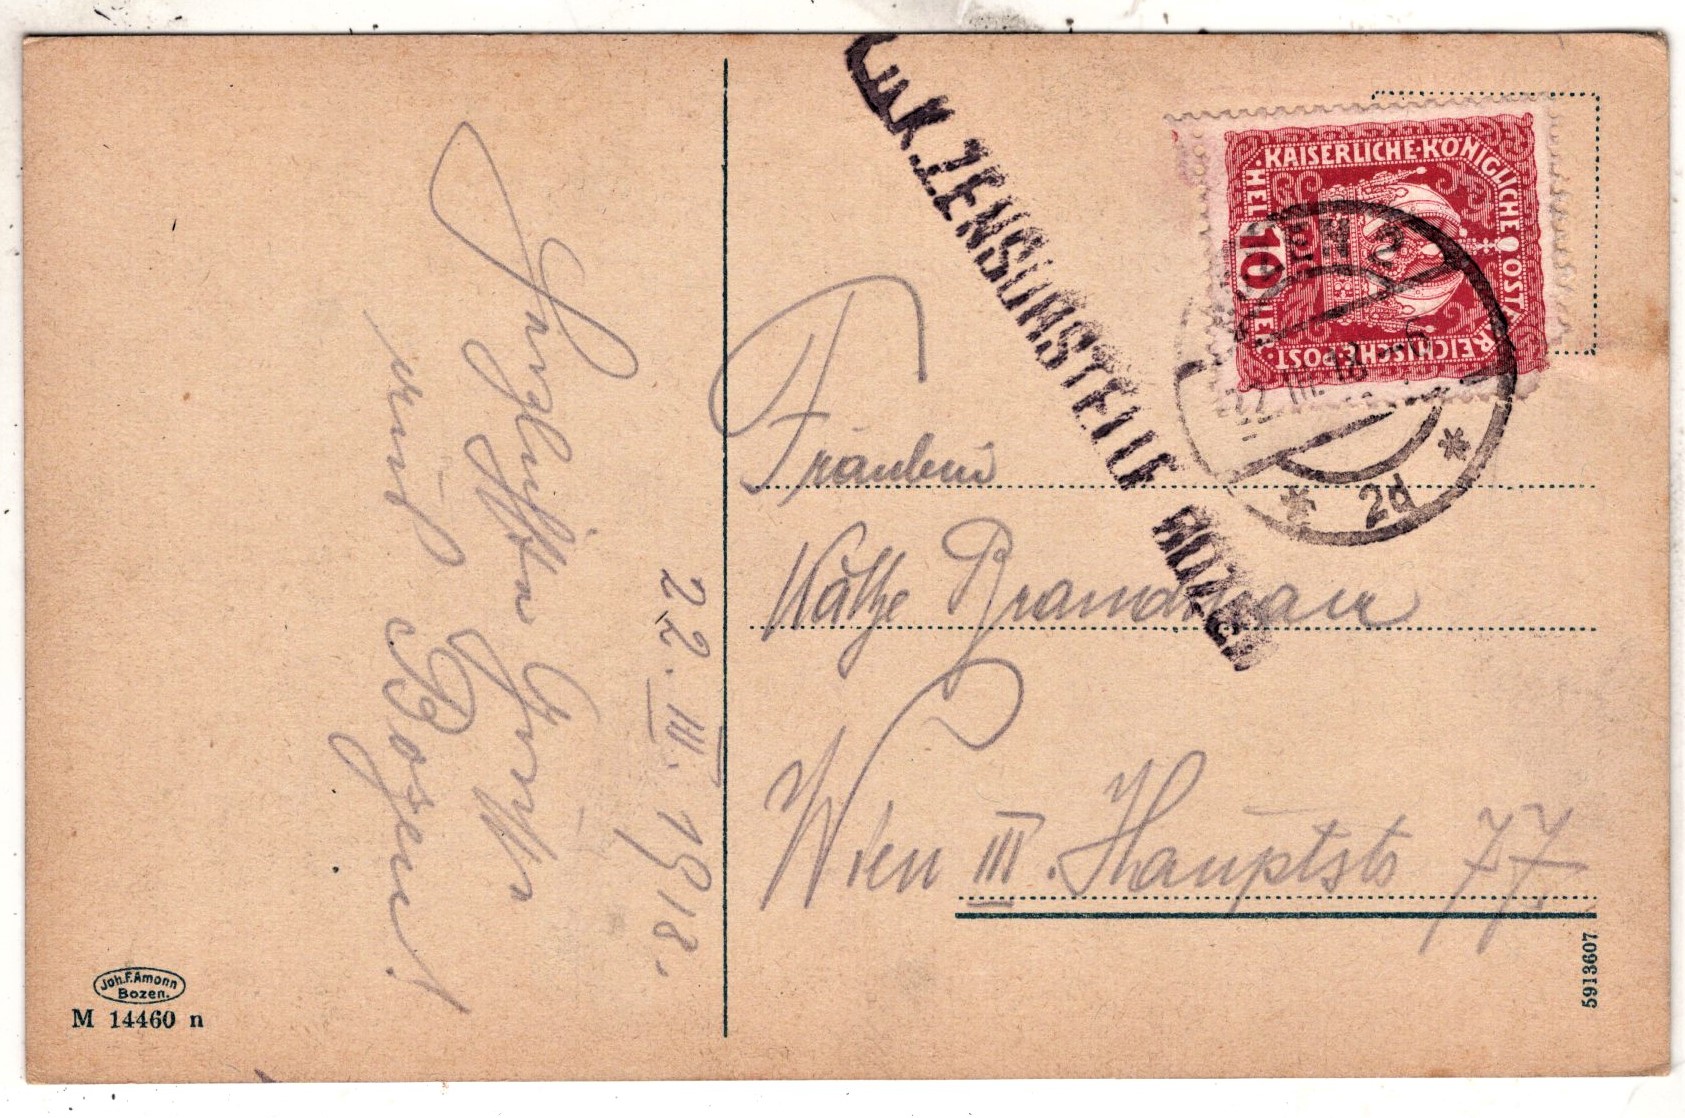 22. III. 1918.
Herzlichsten Gruß
aus Bozen!
Joh. F. Amonn
Bozen.
M 14460 n
K.u.K. ZENSURSTELLE BOZEN
KAISERLICHE·KÖNIGLICHE ÖSTERREICHISCHE POST·
HELLER
10
BOZEN 2
22 III 18 -6
* 2d *
Fräulein
Käthe Brandmair
Wien III. Hauptstr 77
5913607